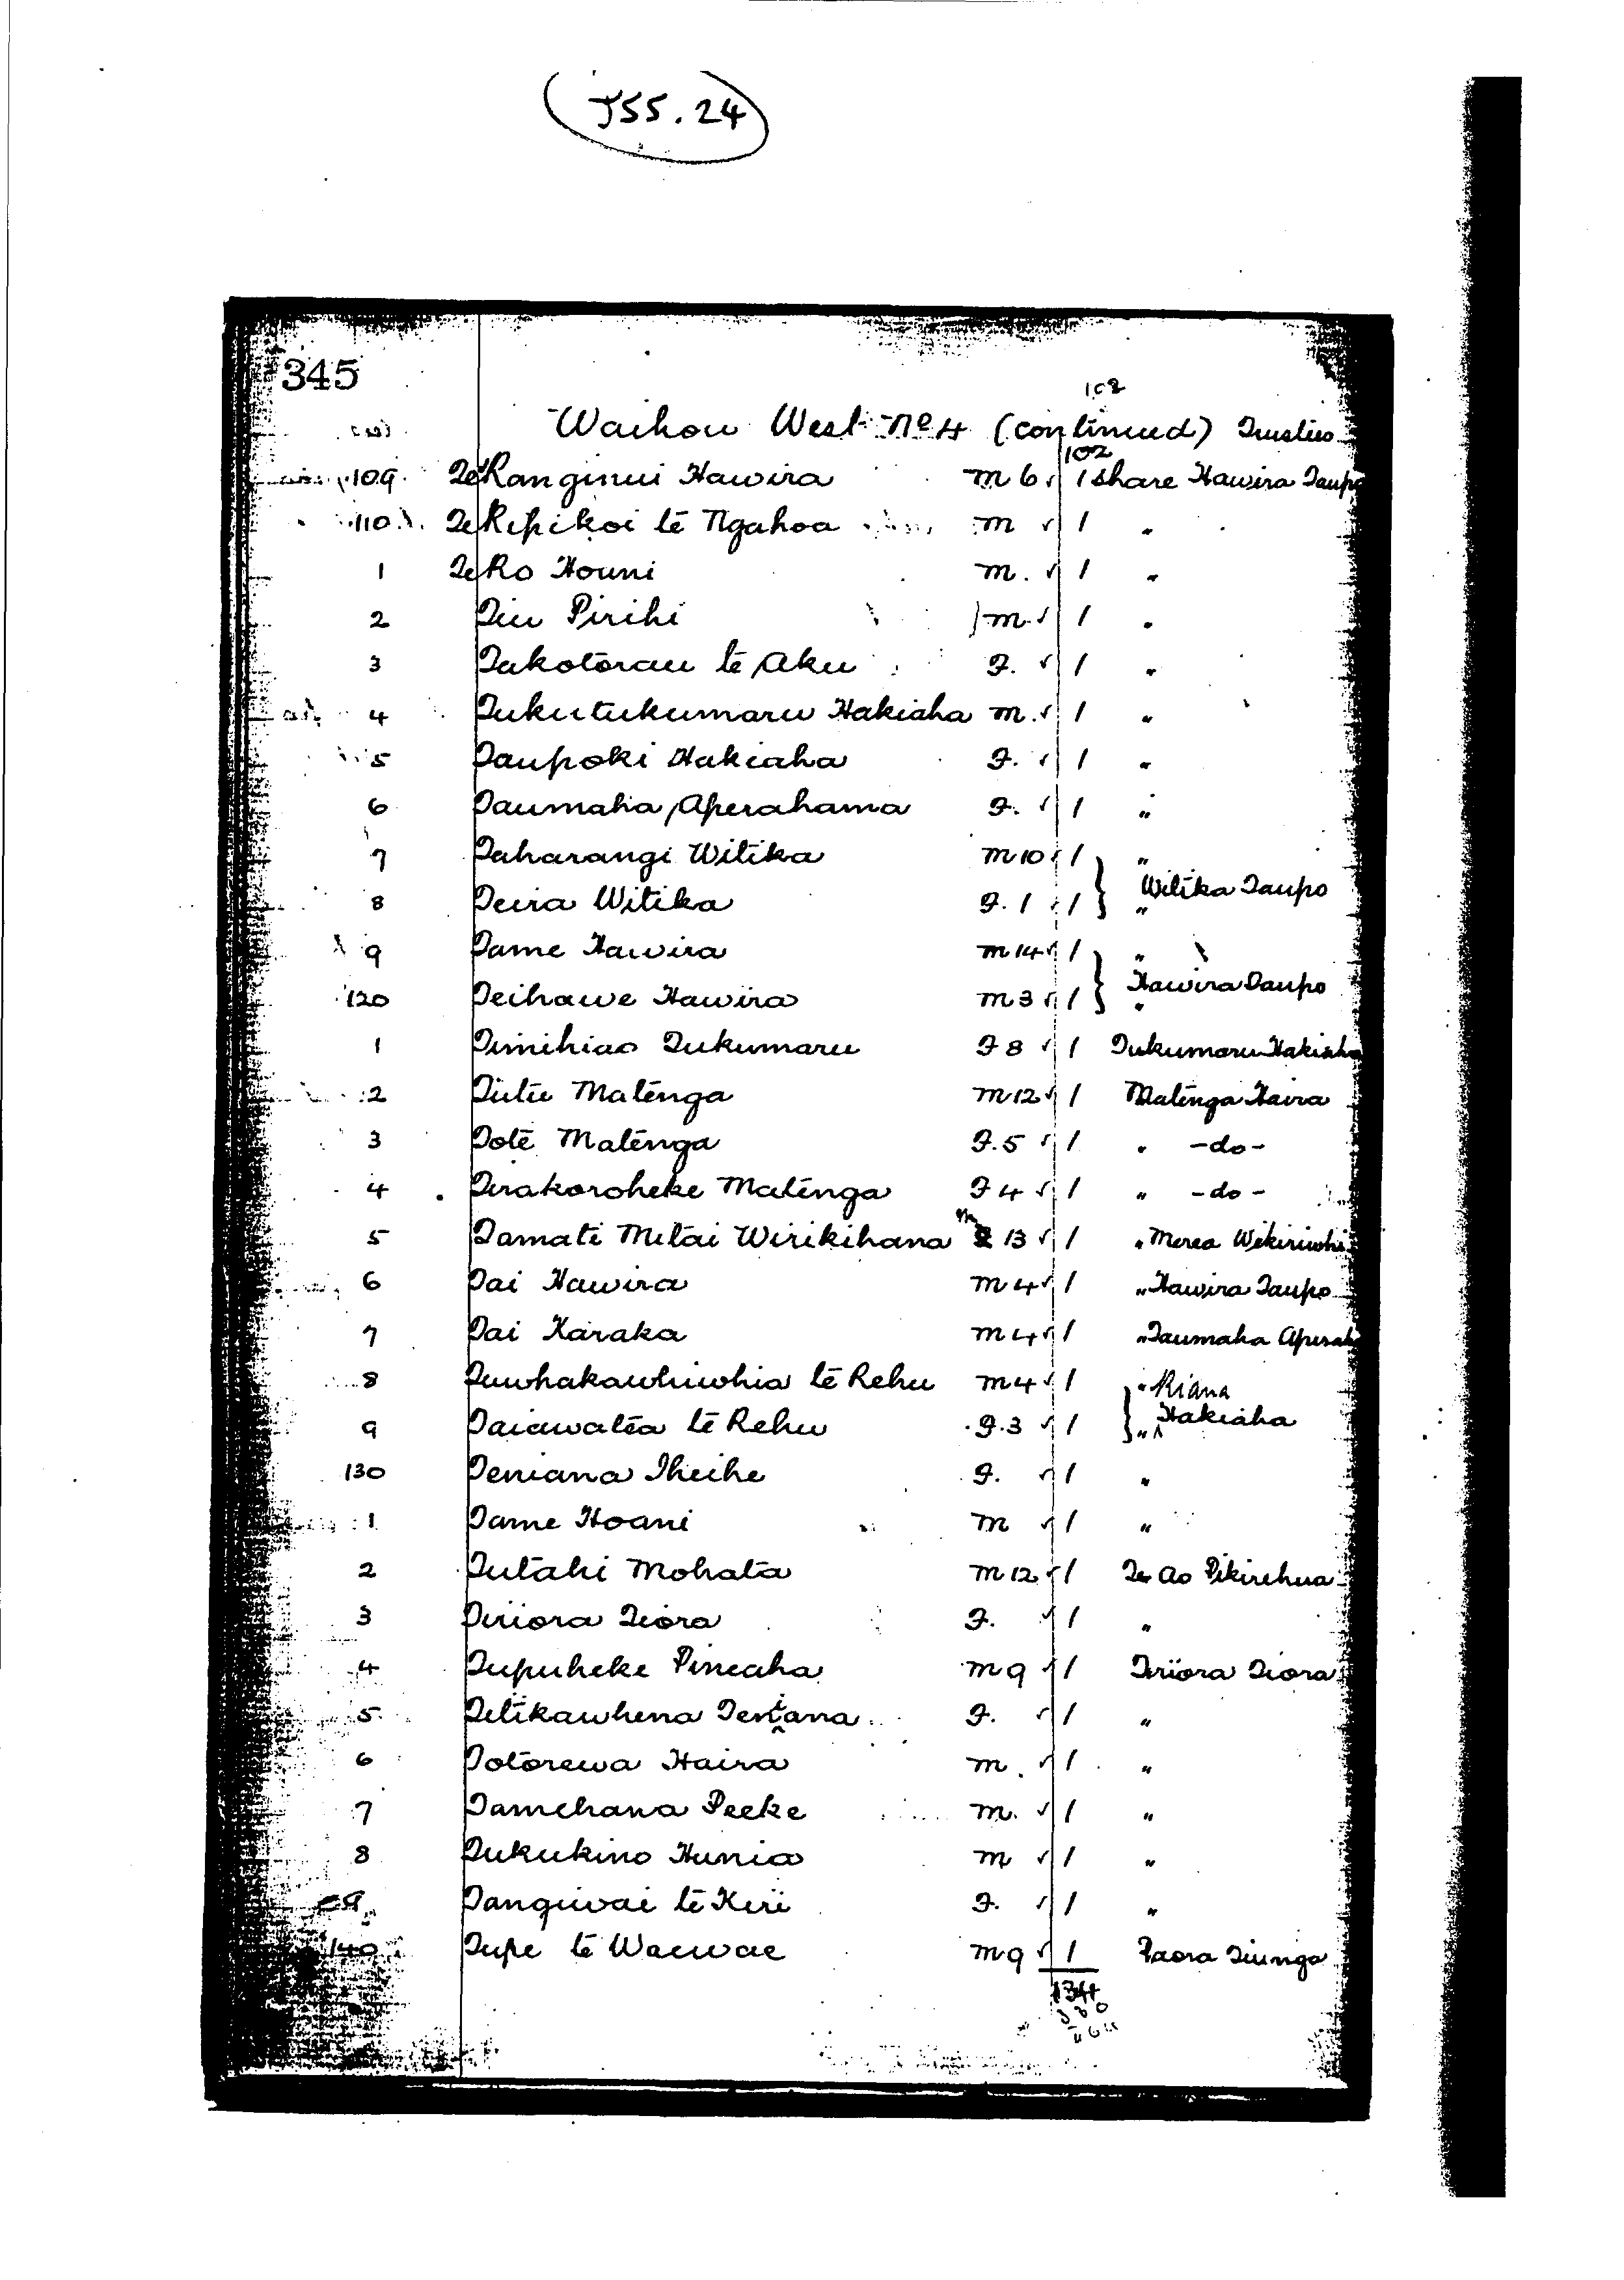 J55.24
345
102
Waihou West No 4 (continued) Trustees
102
109 Te Ranginui Hawira m 6 √ 1 share Hawira Taupo
110 Te Ripikoi te Ngahoa m √ 1 "
1 Te Ro Houni m. √ 1 "
2 Tiu Pirihi m. √ 1 "
3 Takotorau te Aku F. √ 1 "
4 Tukutukumaru Hakiaha m. √ 1 "
5 Taupoki Hakiaha F. √ 1 "
6 Taumaha Aperahama F. √ 1 "
7 Taharangi Witika m 10 √ 1 "
Witika Taupo
8 Teira Witika F. 1 √ 1 "
9 Tame Hawira m 14 √ 1 "
Hawira Taupo
120 Teihawe Hawira m 3 √ 1 "
1 Timihiao Tukumaru F 8 √ 1 Tukumaru Hakiaha
2 Tutu Matenga m 12 √ 1 Matenga Haira
3 Tote Matenga F. 5 √ 1 " -do-
4 Tirakoroheke Matenga F 4 √ 1 " -do-
5 Tamati Mitai Wirikihana m 13 √ 1 " Merea Wikiriwhi
6 Tai Hawira m 4 √ 1 " Hawira Taupo
7 Tai Karaka m 4 √ 1 " Taumaha Aperah
8 Tuwhakawhiwhia te Rehu m 4 √ 1 " Riana
9 Taiawatea te Rehu F. 3 √ 1 " Hakiaha
130 Teniana Iheihe F. √ 1 "
1 Tame Hoani m √ 1 "
2 Tutahi Mohata m 12 √ 1 Te Ao Pikirehua
3 Tiriora Tiora F. √ 1 "
4 Tupuheke Pineaha m 9 √ 1 Tiriora Tiora
5 Tetikawhena Tentana F. √ 1 "
6 Totorewa Haira m. √ 1 "
7 Tamehana Peeke m. √ 1 "
8 Tukukino Hunia m √ 1 "
9 Tangiwai te Kiri F. √ 1 "
140 Tupe te Waewae m 9 √ 1 Paora Tiunga
134